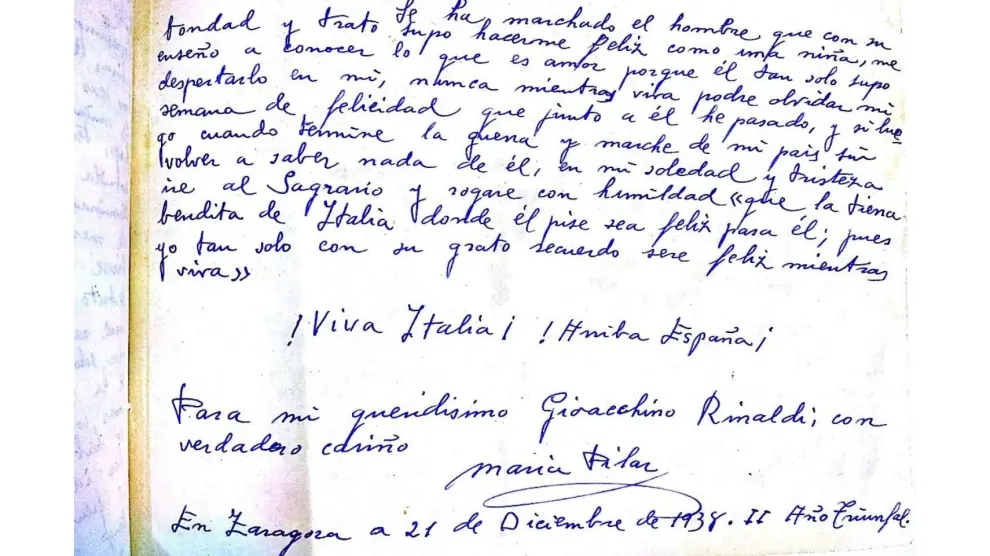 Se ha marchado el hombre que con su
bondad y trato supo hacerme feliz como una niña, me
enseño a conocer lo que es amor porque él tan solo supo
despertarlo en mi, nunca mientras viva podre olvidar mi
semana de felicidad que junto a él he pasado, y si lue
go cuando termine la guerra y marche de mi pais sin
volver a saber nada de él, en mi soledad y tristeza
ire al Sagrario y rogare con humildad «que la tierra
bendita de Italia donde él pise sea feliz para él; pues
yo tan solo con su grato recuerdo sere feliz mientras
viva»
!Viva Italia¡ !Arriba España¡
Para mi queridisimo Gioacchino Rinaldi, con
verdadero cariño
maria Pilar
En Zaragoza a 21 de Diciembre de 1938. II Año Triunfal.